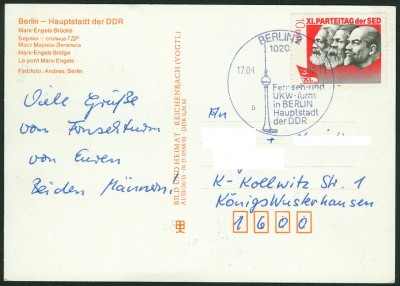 Berlin – Hauptstadt der DDR
Marx-Engels-Brücke
Берлин – столица ГДР
Мост Маркса-Энгельса
Marx-Engels Bridge
Le pont Marx-Engels
Farbfoto: Andres, Berlin
Viele Grüße
vom Fernsehturm
von Euren
beiden Männern!
BILD UND HEIMAT REICHENBACH (VOGTL)
BERLIN
1020
17.04
a
Fernseh- und
UKW-Turm
in BERLIN
Hauptstadt
der DDR
XI. PARTEITAG der SED
10
DDR
An
K-Kollwitz Str. 1
Königswusterhausen
1600